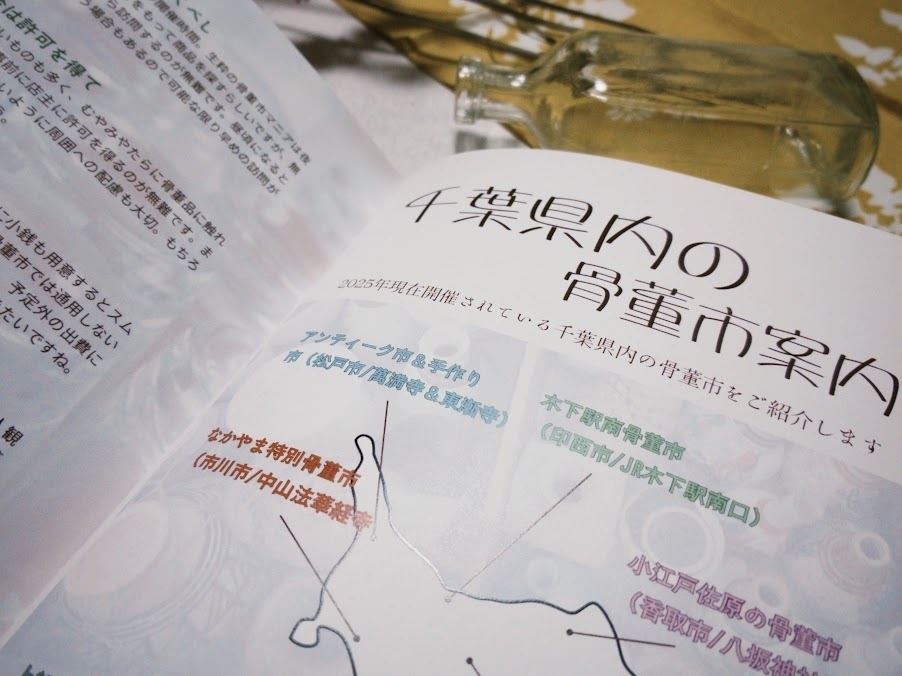 べし
開催時間。生粋の骨董市マニアは夜
をもって商品を探すらしいですが、無
ら訪問するのが無難です。昼頃になると
う場合もあるので可能な限り早めの訪問が
は許可を得て
いものも多く、むやみやたらに骨董品に触れ
ま
前に店主に許可を得るのが無難です。もちろ
いように周囲への配慮も大切。
に小銭も用意するとスム
骨董市では通用しない
予定外の出費に
たいですね。
観
千葉県内の
骨董市案内
2025年現在開催されている千葉県内の骨董市をご紹介します
アンティーク市&手作り
市（松戸市/萬満寺&東漸寺）
木下駅南骨董市
（印西市/JR木下駅南口）
なかやま特別骨董市
（市川市/中山法華経寺
小江戸佐原の骨董市
（香取市/八坂神社